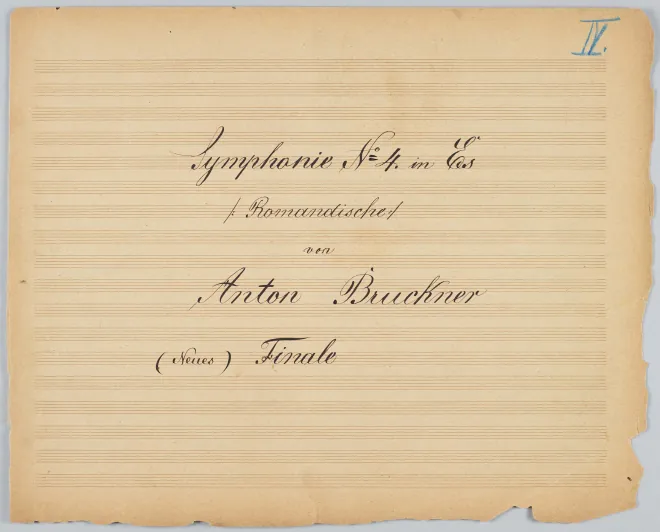 IV.
Symphonie No 4. in Es
/: Romandische :/
von
Anton Bruckner
(Neues) Finale